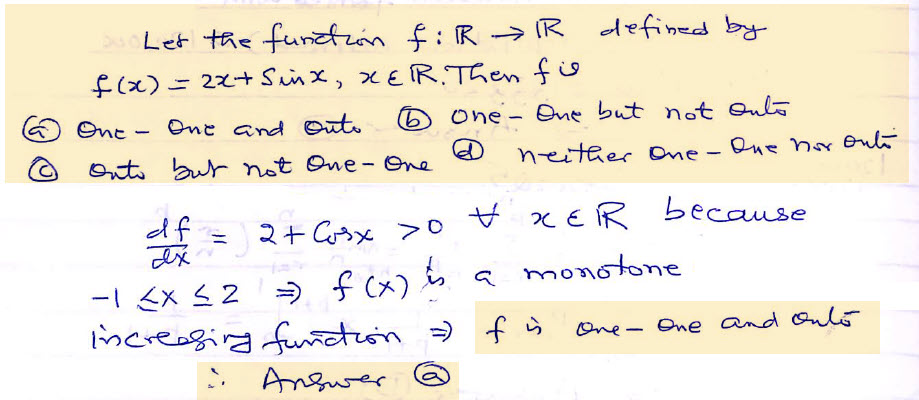 Let the function f : ℝ → ℝ defined by
f(x) = 2x + Sin x, x ∈ ℝ. Then f is
(a) One - One and Onto (b) One - One but not Onto
(c) Onto but not One - One (d) neither One - One nor Onto
df/dx = 2 + Cos x > 0 ∀ x ∈ ℝ because
-1 ≤ x ≤ 2 ⇒ f(x) is a monotone
increasing function ⇒ f is One - One and Onto
∴ Answer (a)